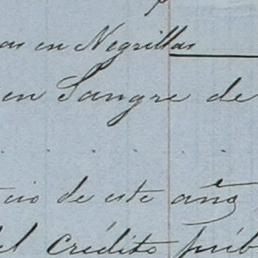 as en Negrillas
en Sangre de
cio de este año
el crédito púb